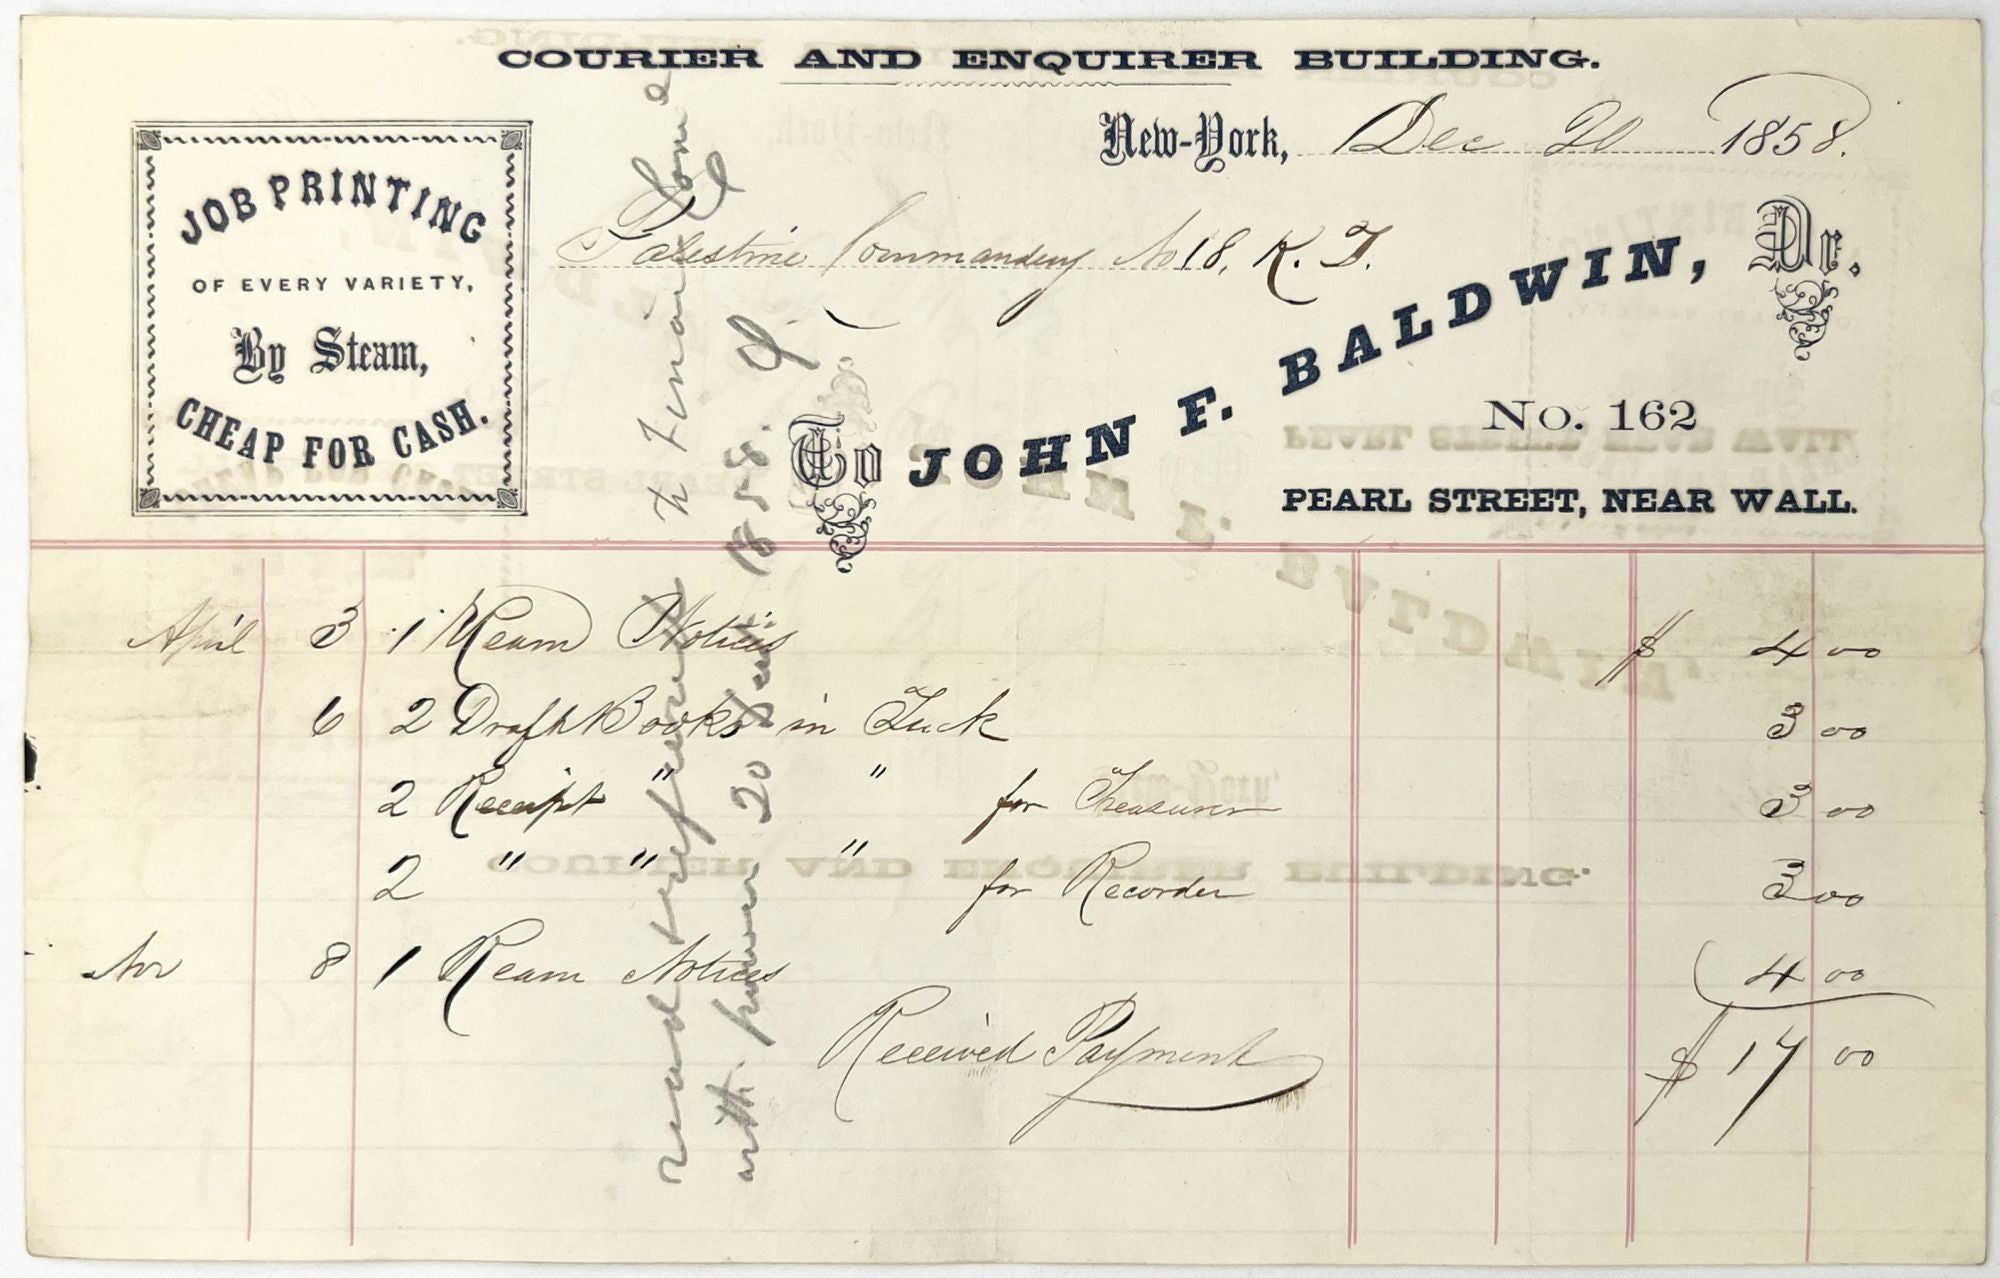 COURIER AND ENQUIRER BUILDING.
New-York, Dec 20 1858.
JOB PRINTING
OF EVERY VARIETY,
By Steam,
CHEAP FOR CASH.
Palestine Commandery No 18, K. T.
Dr.
To JOHN F. BALDWIN,
No. 162
PEARL STREET, NEAR WALL.
April 3 1 Ream Notices $ 4 00
6 2 Draft Books in Tuck 3 00
2 Receipt " " for Treasurer 3 00
2 " " " for Recorder 3 00
Nov 8 1 Ream Notices 4 00
Received Payment $ 17 00
read & referred to Finan Come
with power 20 1858.